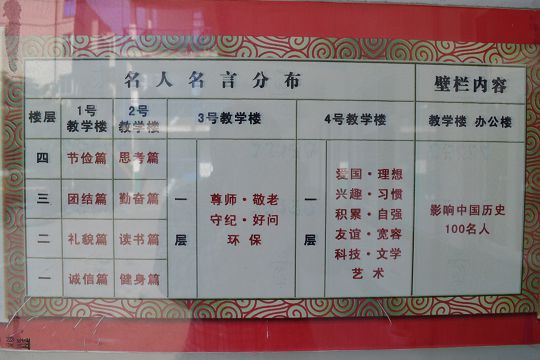 名人名言分布 壁栏内容
楼层 1号教学楼 2号教学楼 3号教学楼 4号教学楼 教学楼 办公楼
四 节俭篇 思考篇
三 团结篇 勤奋篇
二 礼貌篇 读书篇
一 诚信篇 健身篇
一层
尊师·敬老
守纪·好问
环保
一层
爱国·理想
兴趣·习惯
积累·自强
友谊·宽容
科技·文学
艺术
影响中国历史
100名人